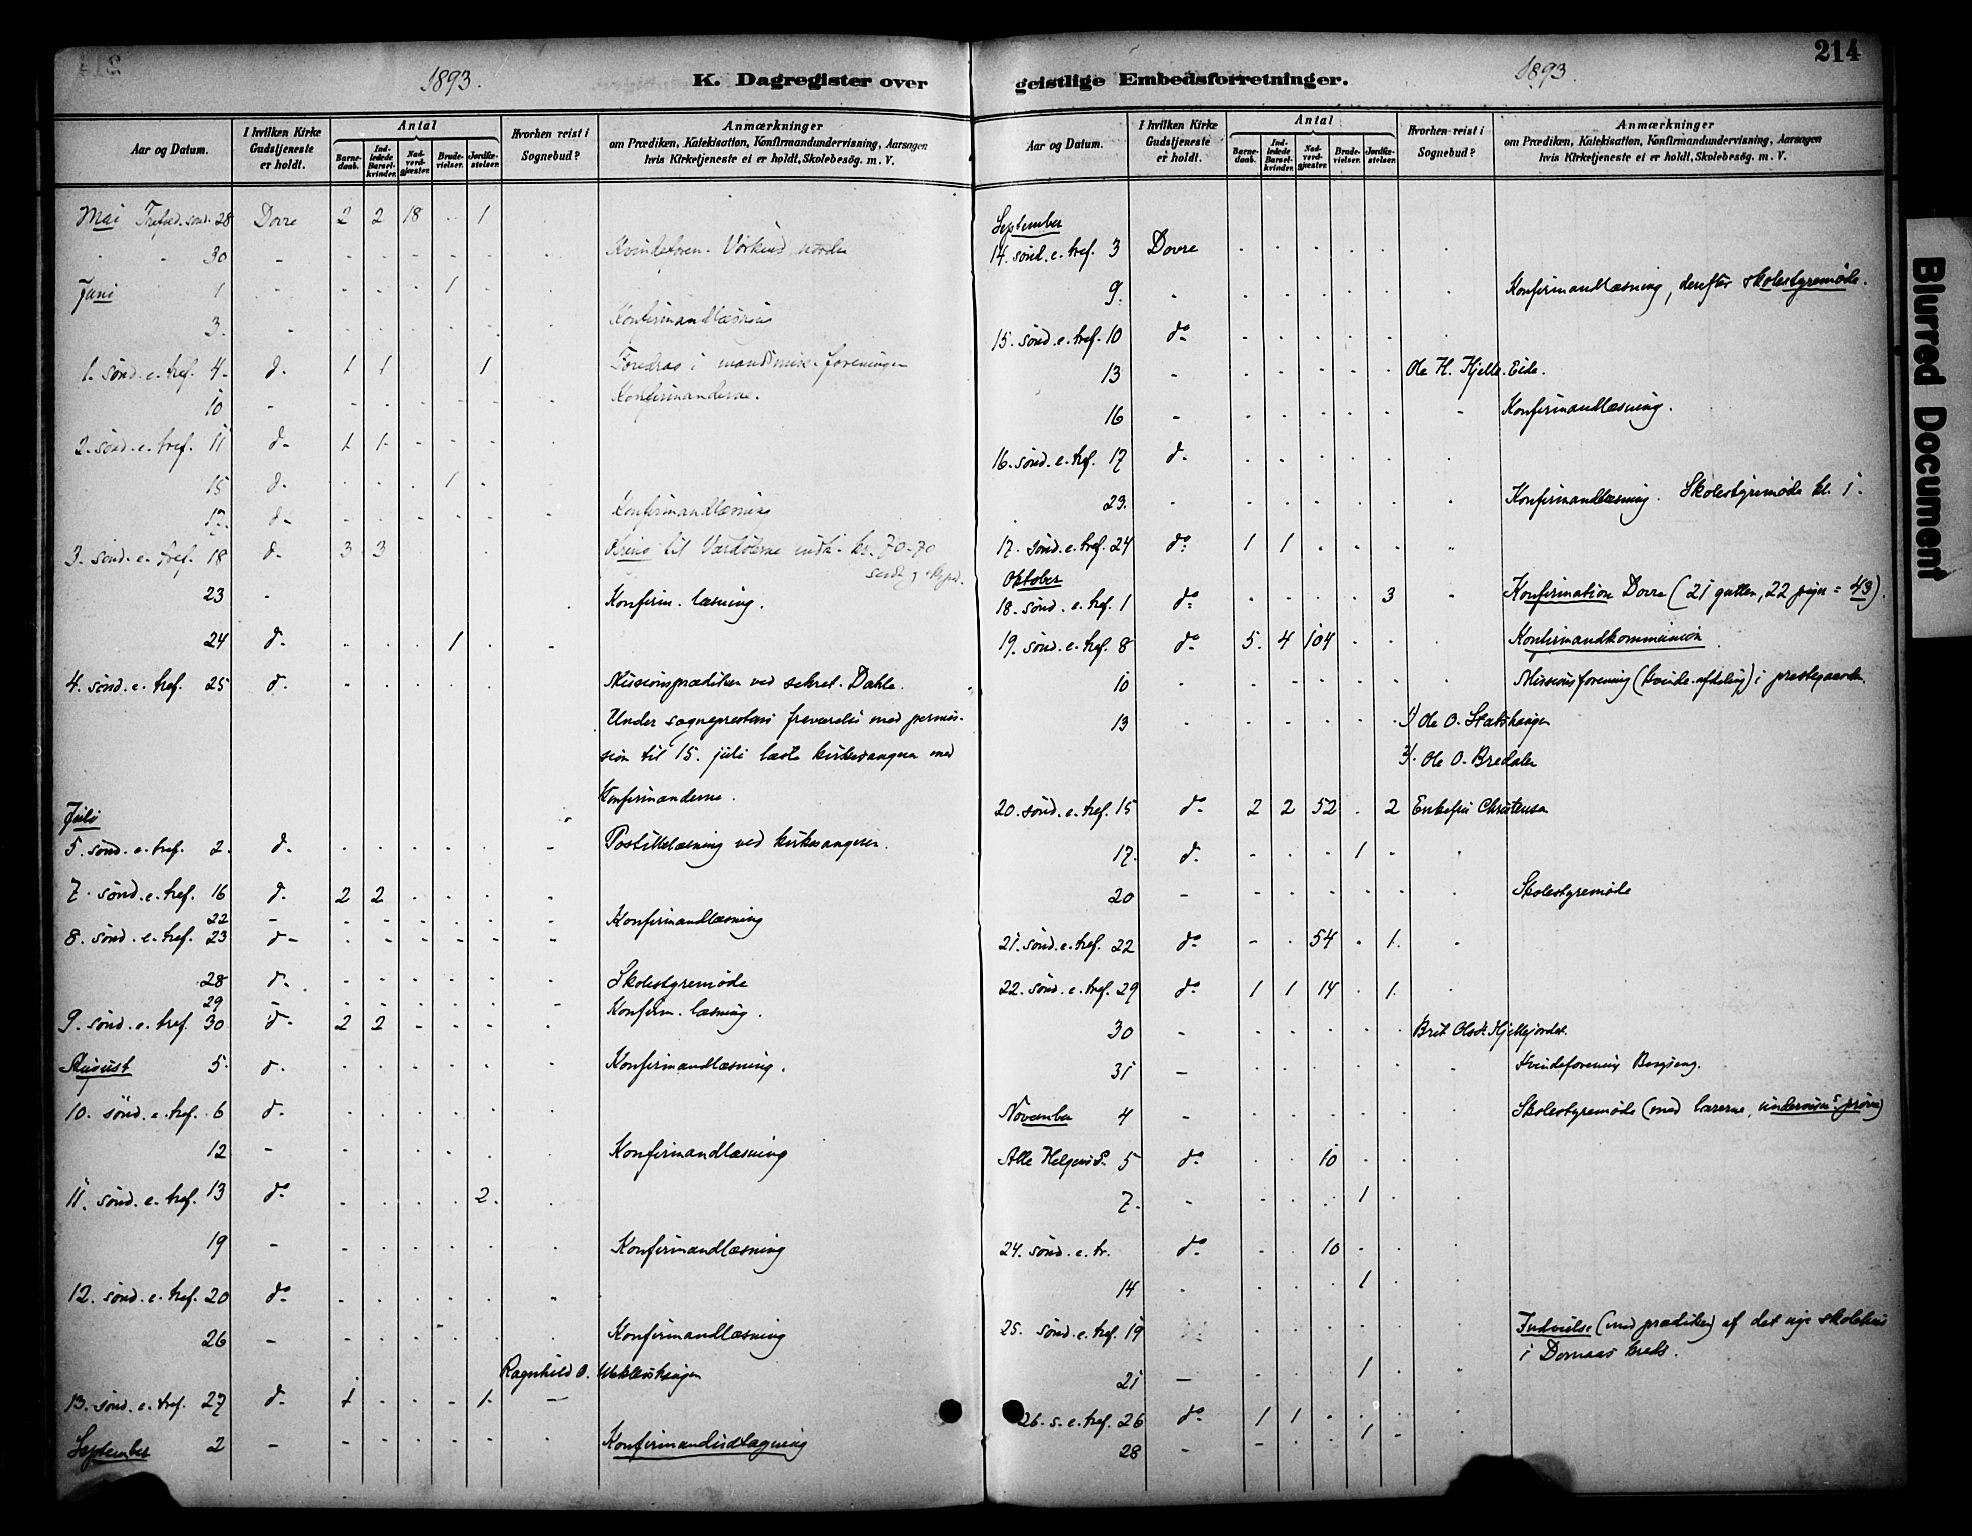 214
1893.
K. Dagregister over geistlige Embedsforretninger.
1893.
Aar og Datum.
I hvilken Kirke Gudstjeneste er holdt.
Antal
Barnedaab.
Indledede Barselkvinder.
Nadverdgjæster.
Brudevielser.
Jordfæstelser.
Hvorhen reist i Sognebud?
Anmærkninger
om Prædiken, Katekisation, Konfirmandundervisning, Aarsagen
hvis Kirketjeneste ei er holdt, Skolebesög. m. V.
Mai Trefold. sønd. 28 Dovre 2 2 18 . 1
30 -
Juni 1 - 1
3. - Konfirmandlæsning
1. sønd. e. tref. 4. d. 1 1 1 Foredrag i foreningen
10 - Konfirmanderne.
2. sønd. e. tref. 11 d. 1 1
15 d. 1
17. d. Konfirmandlæsning
3. sønd. e. tref. 18 d. 3 3 til kr. 70.70
23 - Konfirm. læsning.
24 d. 1
4. sønd. e. tref. 25 d. Missionsprædiken ved sekret. Dahle.
Under sogneprestens fraværelse med permis-
sion til 15. juli læste kirkesangeren med
Konfirmanderne.
Juli
5. sønd. e. tref. 2. d. Postillelæsning ved kirkesangeren.
7. sønd. e. tref. 16 d. 2 2
22 - Konfirmandlæsning
8. sønd. e. tref. 23 d.
28 d. Skolestyremøde
29 - Konfirm. læsning.
9. sønd. e. tref 30 d. 2 2
August 5. d. Konfirmandlæsning.
10. sønd. e. tref. 6 d.
12 - Konfirmandlæsning
11. sønd. e. tref. 13 do 2.
19 - Konfirmandlæsning
12. sønd. e. tref. 20 do
26 - Konfirmandlæsning
Ragnhild O.
13. sønd. e. tref. 27 d. 1 1. -
September 2 - Konfirmandudtagning
Aar og Datum.
I hvilken Kirke Gudstjeneste er holdt.
Antal
Barnedaab.
Indledede Barselkvinder.
Nadverdgjæster.
Brudevielser.
Jordfæstelser.
Hvorhen reist i Sognebud?
Anmærkninger
om Prædiken, Katekisation, Konfirmandundervisning, Aarsagen
hvis Kirketjeneste ei er holdt, Skolebesög. m. V.
September
14. sønd. e. tref. 3 Dovre
9. - Konfirmandlæsning, derefter skolestyremøde.
15. sønd. e. tref. 10 do
13 - Ole H. Kjelle. Eide.
16 - Konfirmandlæsning.
16. sønd. e. tref. 17 d.
23. - Konfirmandlæsning. Skolestyremøde kl. 1.
17. sønd. e. tref. 24 do 1 1
Oktober
18. sønd. e. tref. 1 do 3 Konfirmation Dovre (21 gutter, 22 piger = 43).
19. sønd. e. tref. 8 do 5. 4 104 Konfirmandkommunion.
10 - Missionsforening (kvinde-afdeling) i prestegaarden.
13 - 1) Ole O.
2). Ole O. Bredalen
20. sønd. e. tref. 15 do 2 2 52 . 2 Enkefru Christensen
17. d. 1
20 - Skolestyremøde
21. sønd. e. tref. 22 do - . 54 . 1.
22. sønd. e. tref. 29 do 1 1 14 . 1.
30 - Brit Olsd.
31 - Kvindeforening
November 4 - Skolestyremøde (med lærerne,
Alle Helgens d. 5 do 10
7. - 1
24. sønd. e. tr. do 10
14 - 1
25. sønd. e. tref. 19 Indvielse (med prædiken) af det nye skolehus
i Domaas kreds.
21 - 1
26. s. e. tref. 26 do 1 1
28 - 1
Blurred Document